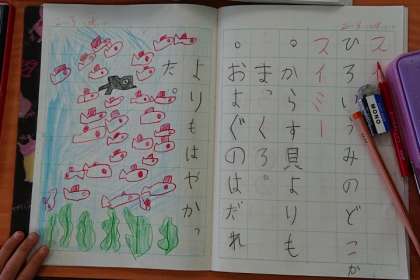 スイミー
ひろいうみのどこか
スイミー
。からす貝よりも
まっくろ。
。およぐのはだれ
よりもはやかっ
た。